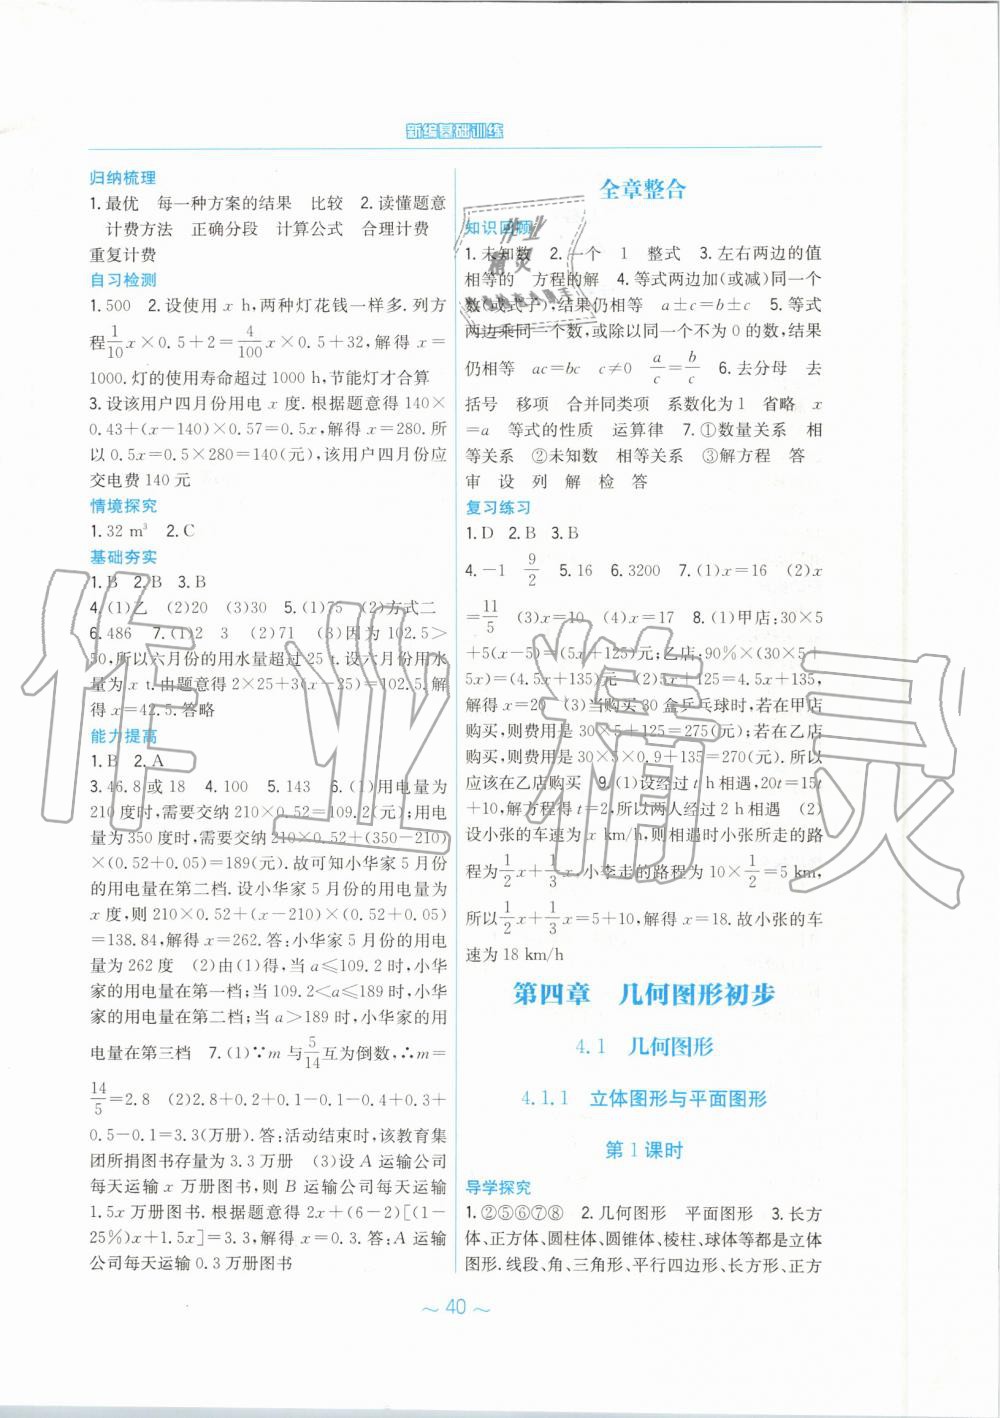 新编基础训练
归纳梳理
1.最优 每一种方案的结果 比较 2.读懂题意
计费方法 正确分段 计算公式 合理计费
重复计费
自习检测
1.500 2.设使用 x h,两种灯花钱一样多.列方
程1/10x×0.5+2=4/100x×0.5+32,解得 x=
1000.灯的使用寿命超过 1000 h,节能灯才合算
3.设该用户四月份用电 x 度.根据题意得 140×
0.43+(x-140)×0.57=0.5x,解得 x=280.所
以 0.5x=0.5×280=140(元),该用户四月份应
交电费 140 元
情境探究
1.32 m³ 2.C
基础夯实
1.B 2.B 3.B
4.(1)乙 (2)20 (3)30 5.(1)75 (2)方式二
6.486 7.(1)2 3 (2)71 (3)因为 102.5>
50,所以六月份的用水量超过 25 t.设六月份用水
量为 x t.由题意得 2×25+3(x-25)=102.5.解
得 x=42.5.答略
能力提高
1.B 2.A
3.46.8 或 18 4.100 5.143 6.(1)用电量为
210 度时,需要交纳 210×0.52=109.2(元);用电
量为 350 度时,需要交纳 210×0.52+(350-210)
×(0.52+0.05)=189(元).故可知小华家 5 月份
的用电量在第二档.设小华家 5 月份的用电量为
x 度,则 210×0.52+(x-210)×(0.52+0.05)
=138.84,解得 x=262.答:小华家 5 月份的用电
量为 262 度 (2)由(1)得,当 a≤109.2 时,小华
家的用电量在第一档;当 109.2<a≤189 时,小华
家的用电量在第二档;当 a>189 时,小华家的用
电量在第三档 7.(1)∵m 与5/14互为倒数,∴m=
14/5=2.8 (2)2.8+0.2+0.1-0.1-0.4+0.3+
0.5-0.1=3.3(万册).答:活动结束时,该教育集
团所捐图书存量为 3.3 万册 (3)设 A 运输公司
每天运输 x 万册图书,则 B 运输公司每天运输
1.5x 万册图书.根据题意得 2x+(6-2)[(1-
25%)x+1.5x]=3.3,解得 x=0.3.答:A 运输
公司每天运输 0.3 万册图书
全章整合
知识回顾
1.未知数 2.一个 1 整式 3.左右两边的值
相等的 方程的解 4.等式两边加(或减)同一个
数(或式子),结果仍相等 a±c=b±c 5.等式
两边乘同一个数,或除以同一个不为 0 的数,结果
仍相等 ac=bc c≠0 a/c=b/c 6.去分母 去
括号 移项 合并同类项 系数化为 1 省略 x
=a 等式的性质 运算律 7.①数量关系 相
等关系 ②未知数 相等关系 ③解方程 答
审 设 列 解 检 答
复习练习
1.D 2.B 3.B
4.-1 9/2 5.16 6.3200 7.(1)x=16 (2)x
=11/5 (3)x=10 (4)x=17 8.(1)甲店:30×5
+5(x-5)=(5x+125)元;乙店:90%×(30×5+
5x)=(4.5x+135)元 (2)5x+125=4.5x+135,
解得 x=20 (3)当购买 30 盒乒乓球时,若在甲店
购买,则费用是 30×5+125=275(元);若在乙店
购买,则费用是 30×5×0.9+135=270(元).所以
应该在乙店购买 9.(1)设经过 t h 相遇,20t=15t
+10,解方程得 t=2,所以两人经过 2 h 相遇 (2)
设小张的车速为 x km/h,则相遇时小张所走的路
程为1/2x+1/3x,小李走的路程为 10×1/2=5 km,
所以1/2x+1/3x=5+10,解得 x=18.故小张的车
速为 18 km/h
第四章 几何图形初步
4.1 几何图形
4.1.1 立体图形与平面图形
第 1 课时
导学探究
1.②⑤⑥⑦⑧ 2.几何图形 平面图形 3.长方
体、正方体、圆柱体、圆锥体、棱柱、球体等都是立体
图形.线段、角、三角形、平行四边形、长方形、正方
～ 40 ～
作业精灵
作业
精灵